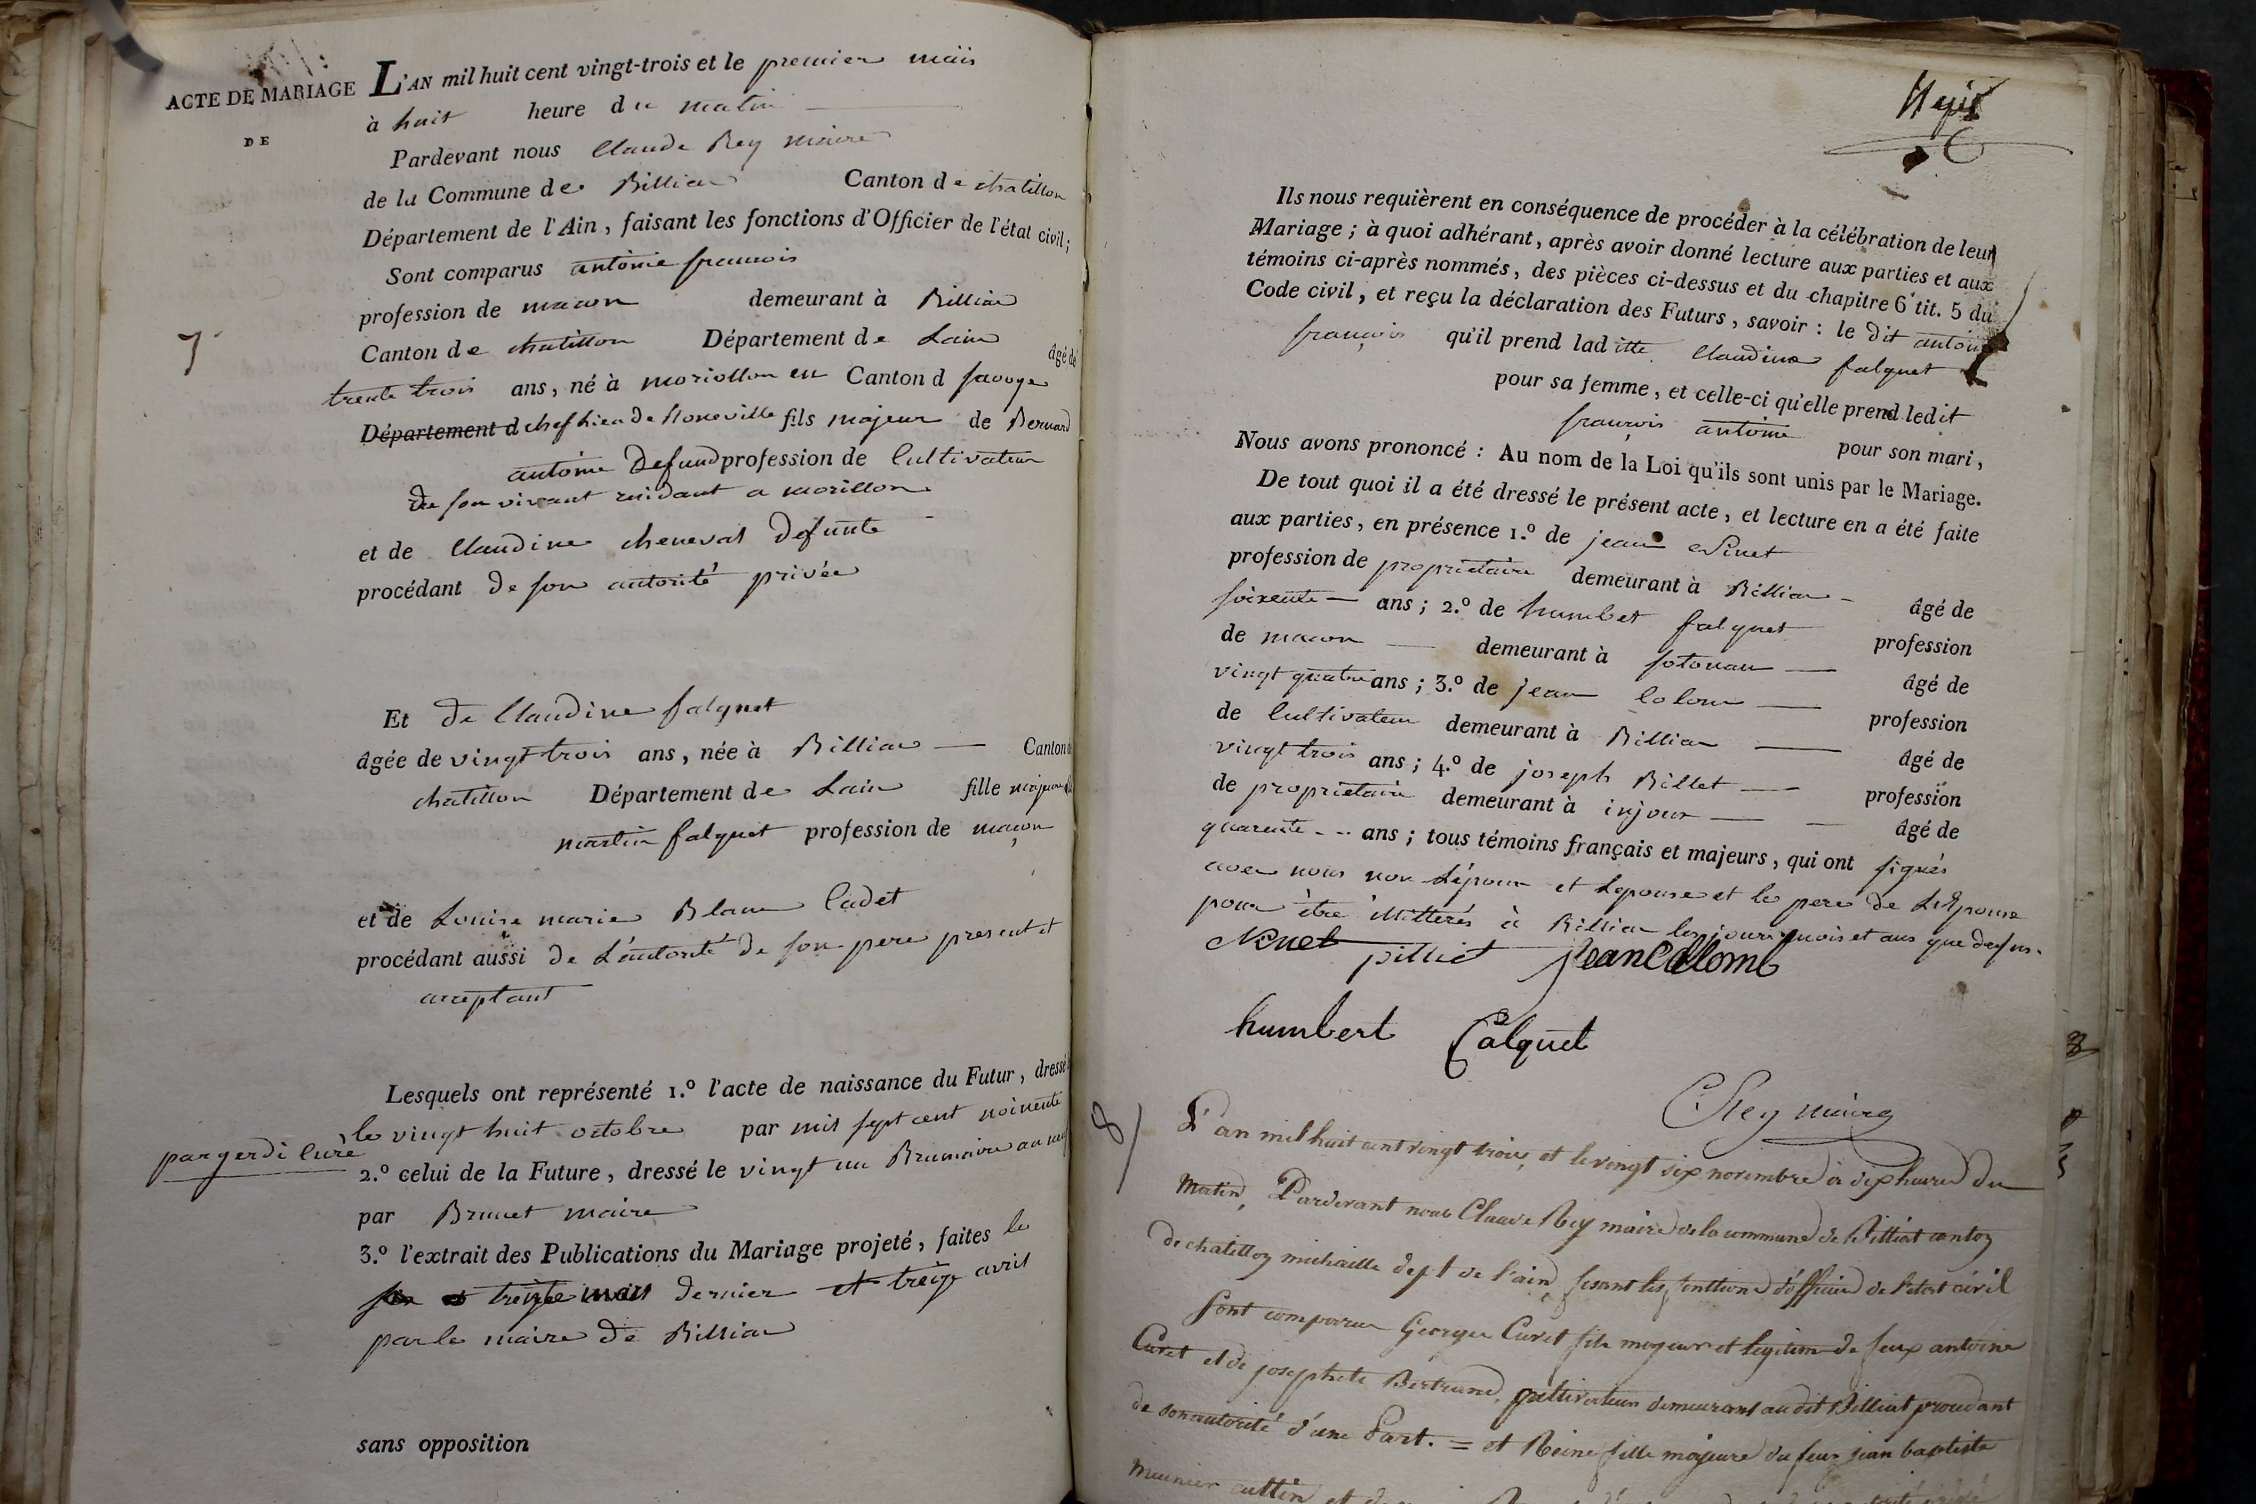 ACTE DE MARIAGE
DE
L'AN mil huit cent vingt-trois et le premier mais
à huit heure du matin
Pardevant nous Claude Rey maire
de la Commune de Billia Canton de chatillon
Département de l'Ain, faisant les fonctions d'Officier de l'état civil;
Sont comparus antoine francois
profession de macon demeurant à Billia
7
Canton de chatillon Département de Lain âgé de
trente trois ans, né à moriollon en Canton d Savoye
Département d chef lieu de Boneville fils majeur de Bernard
antoine defund profession de Cultivateur
de son vivant residant a morillon
et de Claudine cheneval defunte
procédant de son autorité privée
Et de Claudine falquet
âgée de vingt trois ans, née à Billia Canton
chatillon Département de Lain fille majeure
martin falquet profession de maçon
et de Louise marie Blanc Cadet
procédant aussi de L'autorité de son pere present et
acceptant
Lesquels ont représenté 1.º l'acte de naissance du Futur, dressé
le vingt huit octobre par mil sept cent noinente
par gerdi Curé
2.º celui de la Future, dressé le vingt un Brumaire an neuf
par Brunet maire
3.º l'extrait des Publications du Mariage projeté, faites le
treize dernier et treize avril
par le maire de Billia
sans opposition
Ils nous requièrent en conséquence de procéder à la célébration de leur
Mariage; à quoi adhérant, après avoir donné lecture aux parties et aux
témoins ci-après nommés, des pièces ci-dessus et du chapitre 6 tit. 5 du
Code civil, et reçu la déclaration des Futurs, savoir: le dit antoine
françois qu'il prend laditte Claudine falquet
pour sa femme, et celle-ci qu'elle prend ledit
françois antoine pour son mari,
Nous avons prononcé: Au nom de la Loi qu'ils sont unis par le Mariage.
De tout quoi il a été dressé le présent acte, et lecture en a été faite
aux parties, en présence 1.º de jean
profession de proprietaire demeurant à Billia âgé de
soixente ans; 2.º de humbet falquet profession
de macon demeurant à fotonau âgé de
vingt quatre ans; 3.º de jean Colom profession
de Cultivateur demeurant à Billia âgé de
vingt trois ans; 4.º de joseph Billet profession
de proprietaire demeurant à injoux âgé de
quarente ans; tous témoins français et majeurs, qui ont signés
avec nous non L'époux et Lepouse et le pere de L'Epouse
pour être illitterés à Billia les jour mois et ans que dessus.
pilliet jean Collomb
humbert falquet
C Rey maire
8
8
L'an mil huit cent vingt trois, et le vingt six novembre à dix heures du
matin, Pardevant nous Claude Rey maire de la commune de Billiat canton
de chatillon michaille dept de l'ain, fesant les fonttions d'officier de l'etat civil
sont comparu George Curet fils mageur et legitime de feux antoine
Curet et de josephete Bertrand, cultivateur demeurant audit Billiat procedant
de son autorité d'une Part. = et Reine fille majeure du feux jean baptiste
Meunier